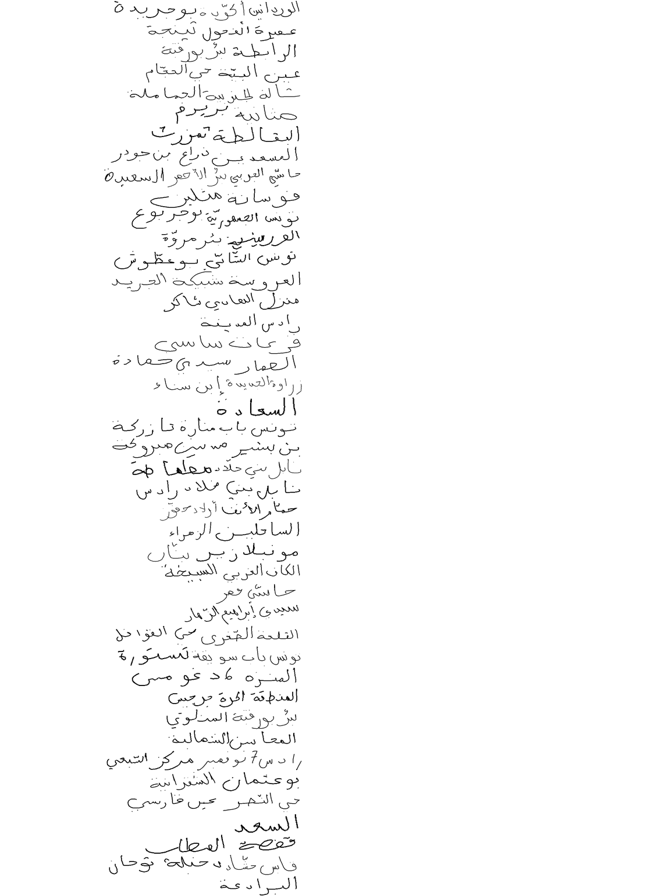 الورדانين أكودة بوجريدة
عميرة الفحول تينجة
الرابطة بئر بورقبة
عين البنية حي المقام
شالة لخزيمة الحماملة
صنانية بريرم
البقالطة تمزرت
المسعدين ذراع بن جودر
حاسي الفريد بئر الأحمر السعيدة
فوسانة متلين
تونس الجمهورية بوجربوع
بئر مروة
تونس الثاني بوعطوش
العروسة شبيكة الجريد
منزل الهادي شاكر
رادس المدينة
فرحات ساسي
العمار سيدي حمادة
زراوة الجديدة إبن سناء
السعادة
تونس باب منارة تازركة
بن بشير سيدي مبروكة
نابل بني خلاد مطماطة
نابل بني خلاد رادس
حمام الأنف أولاد حفوز
الساحلين الزهراء
مونبلازير بنان
الكاف الغربي السبيخة
حاسي عمر
سيدي إبراهيم الزهار
القلعة الصغرى حي القوافل
تونس باب سويقة تستور
المنزه 6 دغومس
المنطقة الحرة جرجيس
بئر بورقبة المتلوي
المحاسن الشمالية
رادس 7 نوفمبر مركز الشيحي
بوعثمان الشعرانية
حي النصر عين فارسي
السعد
قفصة الحطاب
فاس حشاد دخيلة توجان
البرادعة